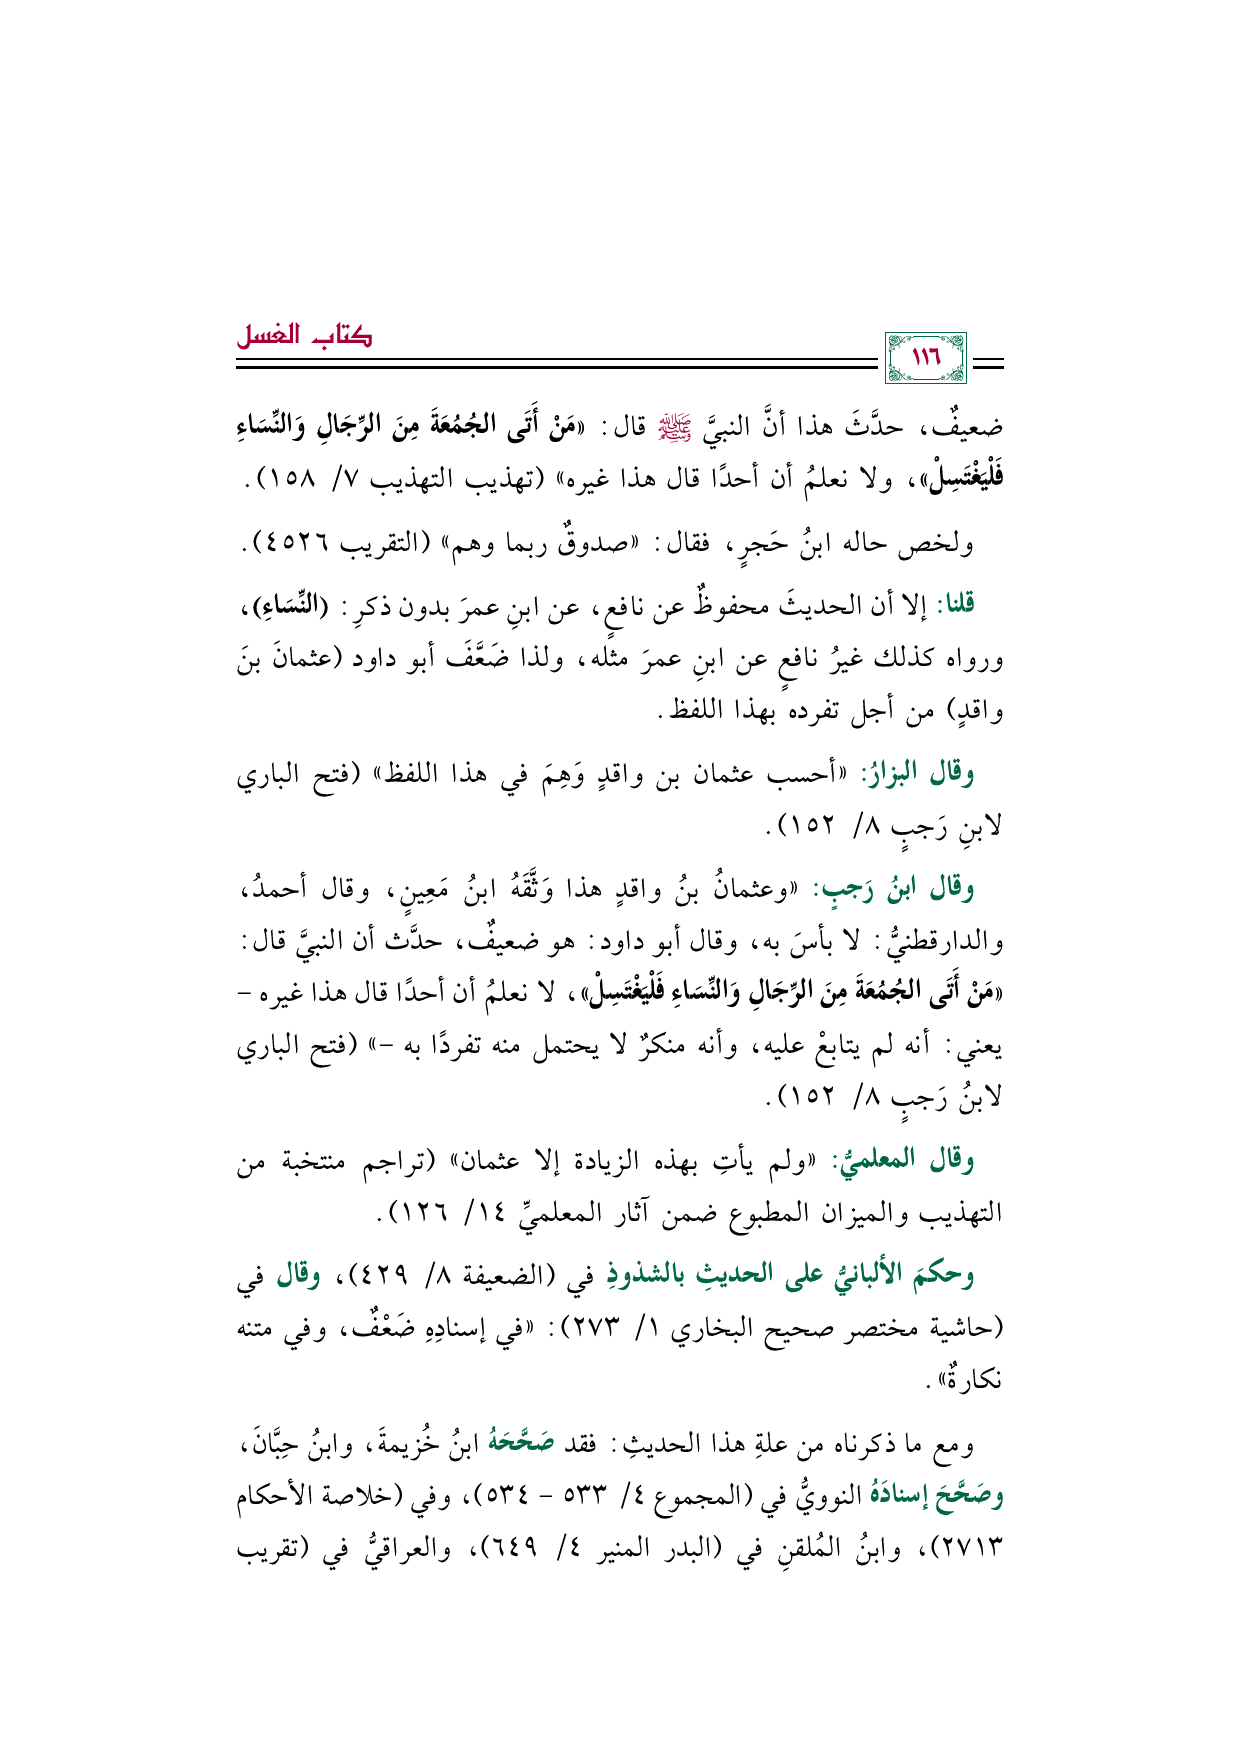 كتاب الغسل
١١٦
ضعيفٌ، حدَّثَ هذا أنَّ النبيَّ ﷺ قال: «مَنْ أَتَى الجُمُعَةَ مِنَ الرِّجَالِ وَالنِّسَاءِ
فَلْيَغْتَسِلْ»، ولا نعلمُ أن أحدًا قال هذا غيره» (تهذيب التهذيب ٧/ ١٥٨).
ولخص حاله ابنُ حَجرٍ، فقال: «صدوقٌ ربما وهم» (التقريب ٤٥٢٦).
قلنا: إلا أن الحديثَ محفوظٌ عن نافعٍ، عن ابنِ عمرَ بدون ذكرِ: (النِّسَاءِ)،
ورواه كذلك غيرُ نافعٍ عن ابنِ عمرَ مثله، ولذا ضَعَّفَ أبو داود (عثمانَ بنَ
واقدٍ) من أجل تفرده بهذا اللفظ.
وقال البزارُ: «أحسب عثمان بن واقدٍ وَهِمَ في هذا اللفظ» (فتح الباري
لابنِ رَجبٍ ٨/ ١٥٢).
وقال ابنُ رَجبٍ: «وعثمانُ بنُ واقدٍ هذا وَثَّقَهُ ابنُ مَعِينٍ، وقال أحمدُ،
والدارقطنيُّ: لا بأسَ به، وقال أبو داود: هو ضعيفٌ، حدَّث أن النبيَّ قال:
«مَنْ أَتَى الجُمُعَةَ مِنَ الرِّجَالِ وَالنِّسَاءِ فَلْيَغْتَسِلْ»، لا نعلمُ أن أحدًا قال هذا غيره -
يعني: أنه لم يتابعْ عليه، وأنه منكرٌ لا يحتمل منه تفردًا به -» (فتح الباري
لابنُ رَجبٍ ٨/ ١٥٢).
وقال المعلميُّ: «ولم يأتِ بهذه الزيادة إلا عثمان» (تراجم منتخبة من
التهذيب والميزان المطبوع ضمن آثار المعلميِّ ١٤/ ١٢٦).
وحكمَ الألبانيُّ على الحديثِ بالشذوذِ في (الضعيفة ٨/ ٤٢٩)، وقال في
(حاشية مختصر صحيح البخاري ١/ ٢٧٣): «في إسنادِهِ ضَعْفٌ، وفي متنه
نكارةٌ».
ومع ما ذكرناه من علةِ هذا الحديثِ: فقد صَحَّحَهُ ابنُ خُزيمةَ، وابنُ حِبَّانَ،
وصَحَّحَ إسنادَهُ النوويُّ في (المجموع ٤/ ٥٣٣ - ٥٣٤)، وفي (خلاصة الأحكام
٢٧١٣)، وابنُ المُلقنِ في (البدر المنير ٤/ ٦٤٩)، والعراقيُّ في (تقريب